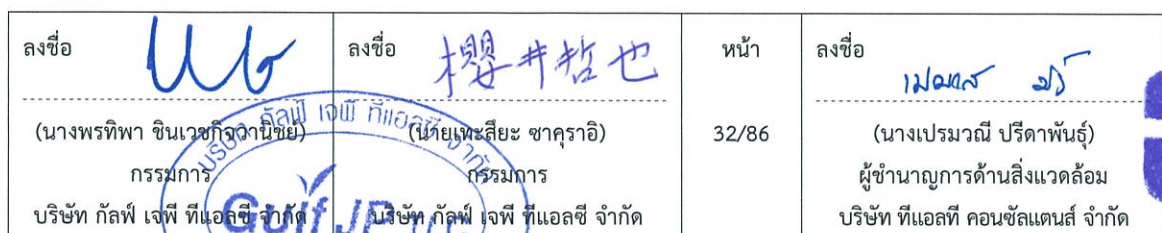 ลงชื่อ
櫻井哲也
(นางพรทิพา ชินเวชกิจวานิชย์)
กรรมการ
บริษัท กัลฟ์ เจพี ทีแอลซี จำกัด
ลงชื่อ
(นายเทะสึยะ ซาคุราอิ)
กรรมการ
บริษัท กัลฟ์ เจพี ทีแอลซี จำกัด
หน้า
32/86
ลงชื่อ
(นางเปรมวณี ปรีดาพันธุ์)
ผู้ชำนาญการด้านสิ่งแวดล้อม
บริษัท ทีแอลที คอนซัลแตนส์ จำกัด
บริษัท กัลฟ์ เจพี ทีแอลซี จำกัด
Gulf JP TLC